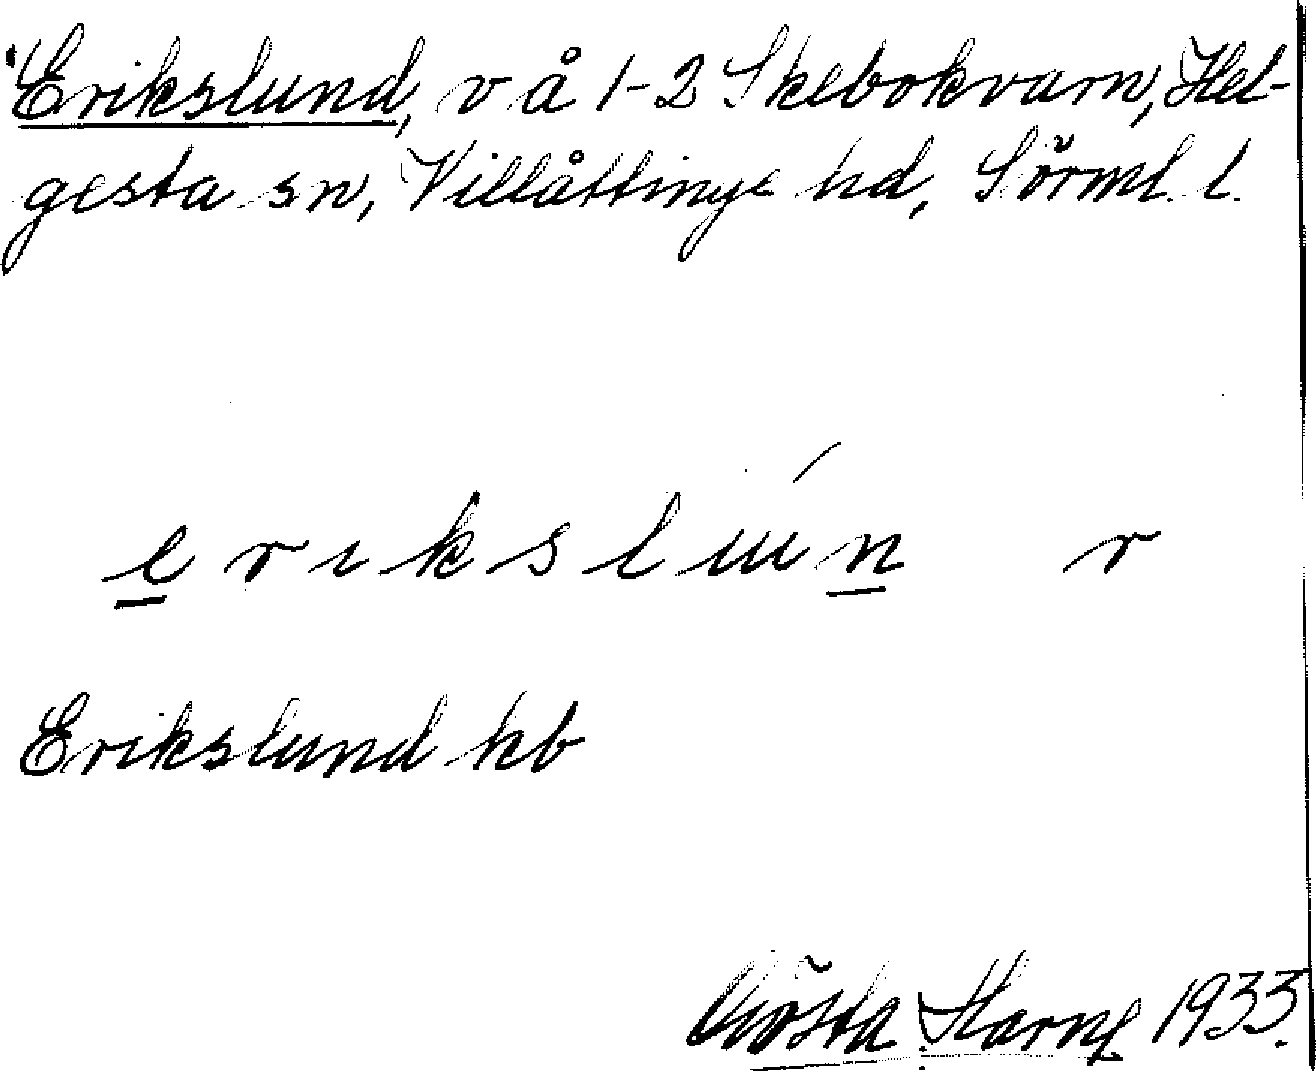 Erikslund, v å 1-2 Skebokvarn, Hel-
gesta sn, Villåttinge hd, Sörml. l.
e r ı k s l u ń r
Erikslund kb
Gösta 1933.